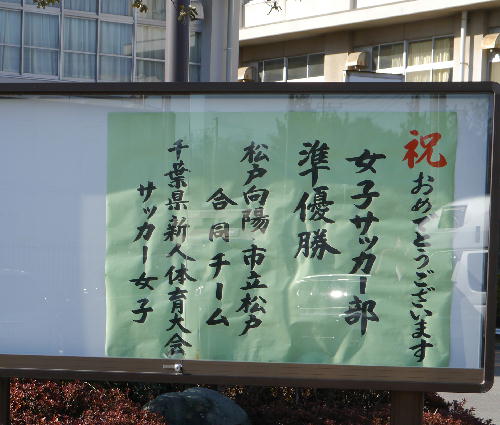 祝 おめでとうございます
女子サッカー部
準優勝
松戸向陽 市立松戸
合同チーム
千葉県新人体育大会
サッカー女子